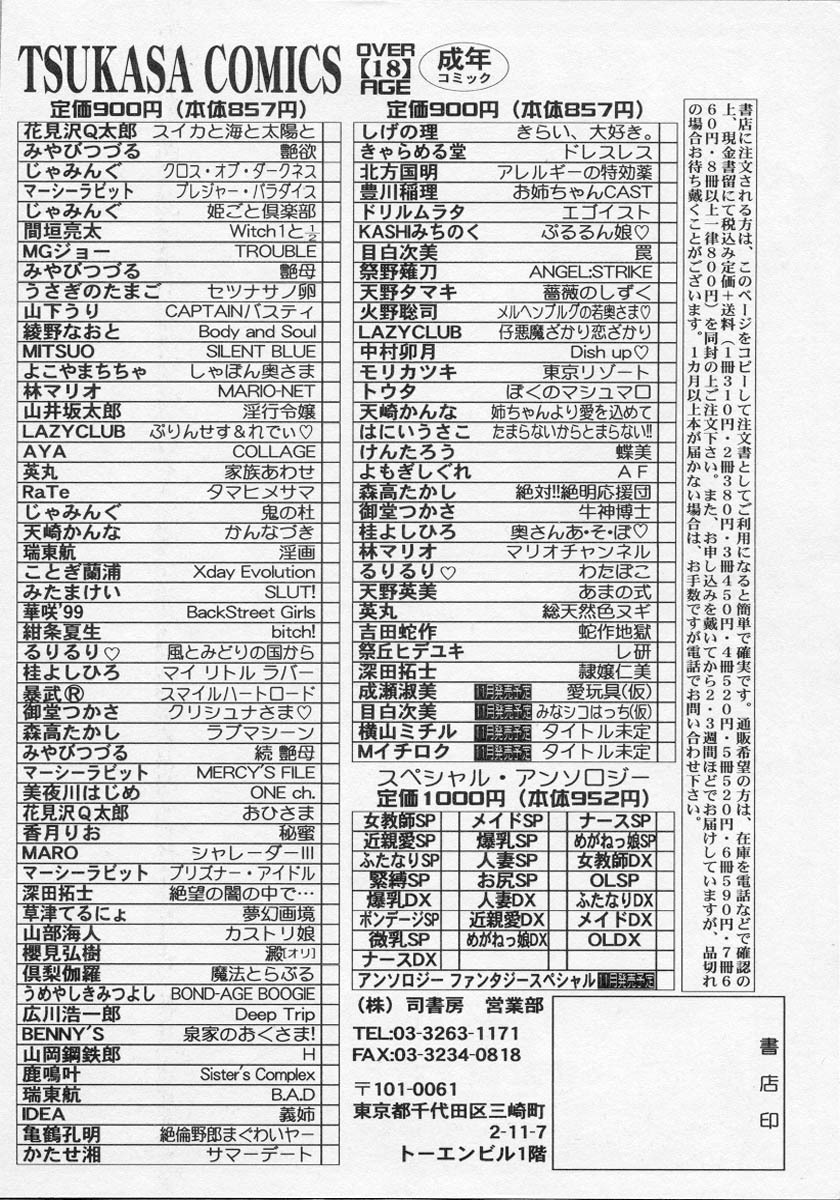 TSUKASA COMICS
OVER
【18】
AGE
成年
コミック
定価900円（本体857円）
花見沢Q太郎 スイカと海と太陽と
みやびつづる 艶欲
じゃみんぐ クロス・オブ・ダークネス
マーシーラビット プレジャー・パラダイス
じゃみんぐ 姫ごと倶楽部
間垣亮太 Witch1と½
MGジョー TROUBLE
みやびつづる 艶母
うさぎのたまご セツナサノ卵
山下うり CAPTAINバスティ
綾野なおと Body and Soul
MITSUO SILENT BLUE
よこやまちちゃ しゃぼん奥さま
林マリオ MARIO-NET
山井坂太郎 淫行令嬢
LAZYCLUB ぷりんせす＆れでぃ♡
AYA COLLAGE
英丸 家族あわせ
RaTe タマヒメサマ
じゃみんぐ 鬼の杜
天崎かんな かんなづき
瑞東航 淫画
ことぎ蘭浦 Xday Evolution
みたまけい SLUT!
華咲'99 BackStreet Girls
紺条夏生 bitch!
るりるり♡ 風とみどりの国から
桂よしひろ マイ リトル ラバー
暴武Ⓡ スマイルハートロード
御堂つかさ クリシュナさま♡
森高たかし ラブマシーン
みやびつづる 続 艶母
マーシーラビット MERCY'S FILE
美夜川はじめ ONE ch.
花見沢Q太郎 おひさま
香月りお 秘蜜
MARO シャレーダーIII
マーシーラビット プリズナー・アイドル
深田拓士 絶望の闇の中で…
草津てるにょ 夢幻画境
山部海人 カストリ娘
櫻見弘樹 澱[オリ]
倶梨伽羅 魔法とらぶる
うめやしきみつよし BOND-AGE BOOGIE
広川浩一郎 Deep Trip
BENNY'S 泉家のおくさま!
山岡鋼鉄郎 H
鹿鳴叶 Sister's Complex
瑞東航 B.A.D
IDEA 義姉
亀鶴孔明 絶倫野郎まぐわいヤー
かたせ湘 サマーデート
定価900円（本体857円）
しげの理 きらい、大好き。
きゃらめる堂 ドレスレス
北方国明 アレルギーの特効薬
豊川稲理 お姉ちゃんCAST
ドリルムラタ エゴイスト
KASHIみちのく ぷるるん娘♡
目白次美 罠
祭野薙刀 ANGEL:STRIKE
天野タマキ 薔薇のしずく
火野聡司 メルヘンブルグの若奥さま♡
LAZYCLUB 仔悪魔ざかり恋ざかり
中村卯月 Dish up♡
モリカツキ 東京リゾート
トウタ ぼくのマシュマロ
天崎かんな 姉ちゃんより愛を込めて
はにいうさこ たまらないからとまらない!!
けんたろう 蝶美
よもぎしぐれ ＡＦ
森高たかし 絶対!!絶明応援団
御堂つかさ 牛神博士
桂よしひろ 奥さんあ・そ・ぼ♡
林マリオ マリオチャンネル
るりるり♡ わたぼこ
天野英美 あまの式
英丸 総天然色ヌギ
吉田蛇作 蛇作地獄
祭丘ヒデユキ し研
深田拓士 隷嬢仁美
成瀬淑美 11月発売予定 愛玩具(仮)
目白次美 11月発売予定 みなシコはっち(仮)
横山ミチル 11月発売予定 タイトル未定
Mイチロク 11月発売予定 タイトル未定
スペシャル・アンソロジー
定価1000円（本体952円）
女教師SP メイドSP ナースSP
近親愛SP 爆乳SP めがねっ娘SP
ふたなりSP 人妻SP 女教師DX
緊縛SP お尻SP OLSP
爆乳DX 人妻DX ふたなりDX
ボンデージSP 近親愛DX メイドDX
微乳SP めがねっ娘DX OLDX
ナースDX
アンソロジー ファンタジースペシャル 11月発売予定
（株）司書房 営業部
TEL:03-3263-1171
FAX:03-3234-0818
〒101-0061
東京都千代田区三崎町
2-11-7
トーエンビル1階
書店印
書店に注文される方は、このページをコピーして注文書としてご利用になると簡単で確実です。通販希望の方は、在庫を電話などで確認の
上、現金書留にて税込み定価＋送料（1冊310円・2冊380円・3冊450円・4冊520円・5冊520円・6冊590円・7冊6
60円・8冊以上一律800円）を同封の上ご注文下さい。また、お申し込みを戴いてから2・3週間ほどでお届けしていますが、品切れ
の場合お待ち戴くことがございます。1カ月以上本が届かない場合は、お手数ですが電話でお問い合わせ下さい。